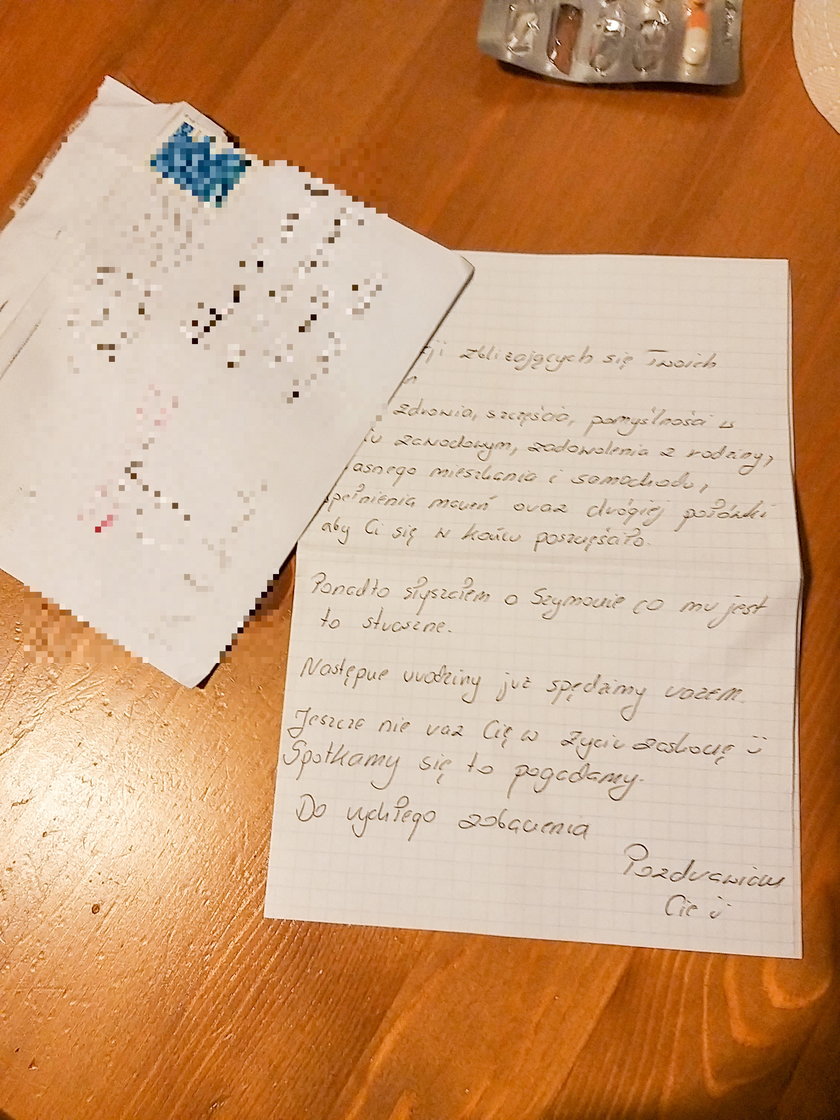 zbliżających się Twoich
zdrowia, szczęścia, pomyślności w
zawodowym, zadowolenia z rodziny,
asnego mieszkania i samochodu,
pełnienia marzeń oraz drógiej połówki
aby Ci się w końcu poszczęściło.
Ponadto słyszałem o Szymonie co mu jest
to straszne.
Następne urodziny już spędzimy razem.
Jeszcze nie raz Cię w życiu zaskoczę
Spotkamy się to pogadamy.
Do rychłego zobaczenia
Pozdrawiam
Cię